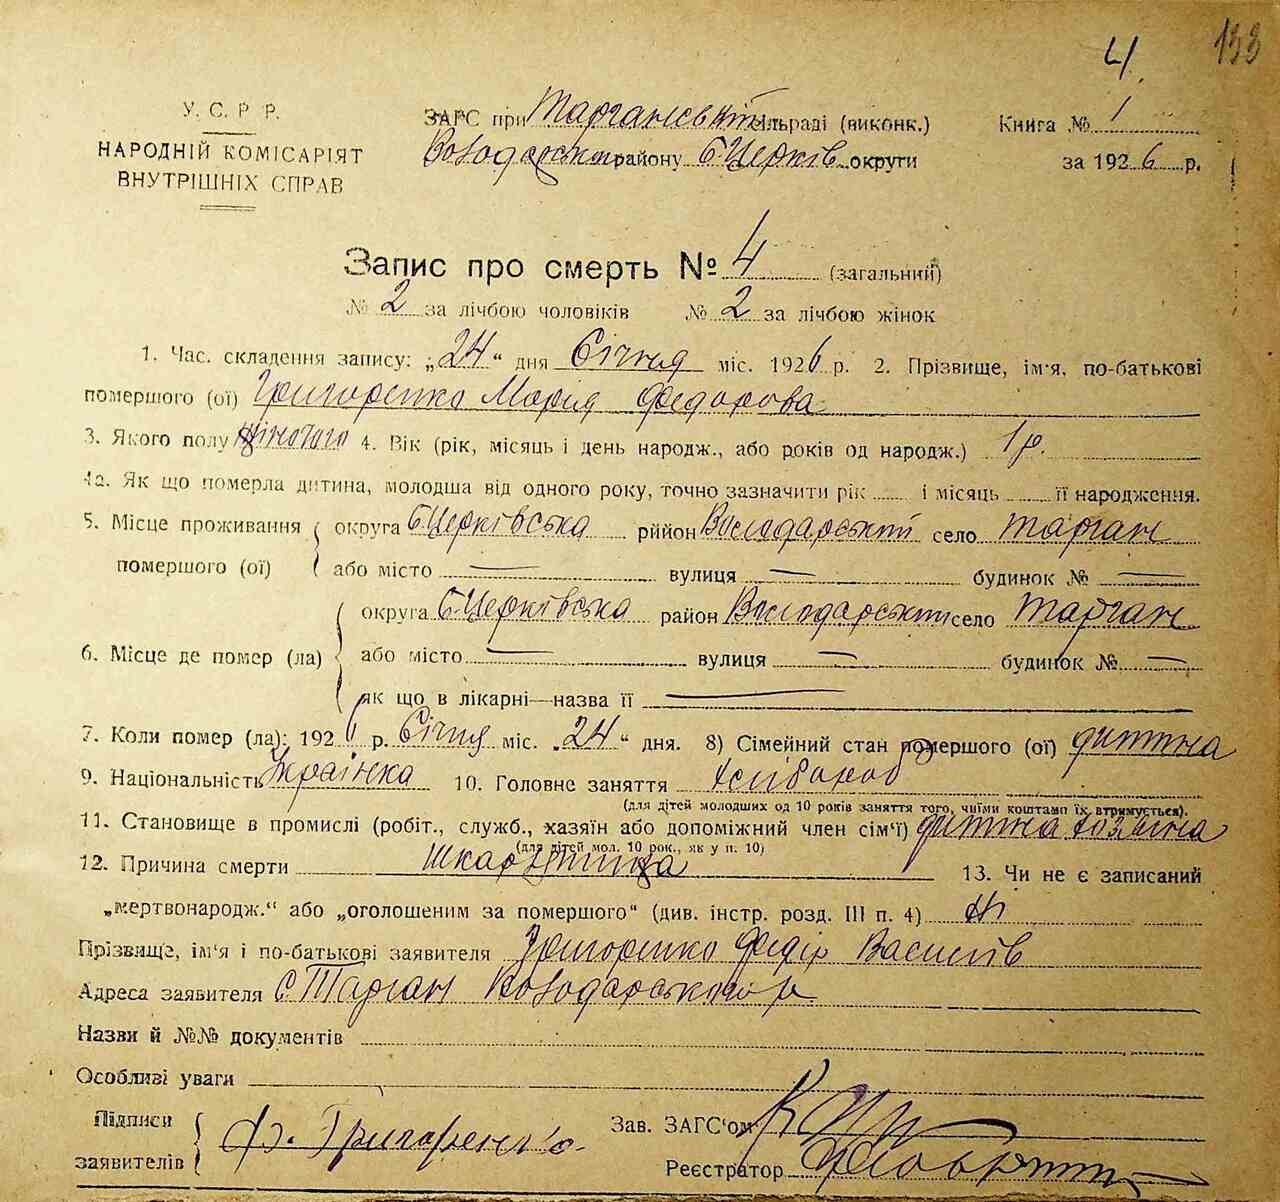 133
4
У. С. Р. Р.
НАРОДНІЙ КОМІСАРІЯТ
ВНУТРІШНІХ СПРАВ
ЗАГС при Тарганській сільраді (виконк.)
Володарськ району Б Церків округи
Книга № 1
за 1926 р.
Запис про смерть № 4 (загальний)
№ 2 за лічбою чоловіків № 2 за лічбою жінок
1. Час. складення запису: „24“ дня Січня міс. 1926 р. 2. Прізвище, ім'я, по-батькові
помершого (ої) Григоренко Марія Федорова
3. Якого полу жіночого 4. Вік (рік, місяць і день народж., або років од народж.) 1 р.
4а. Як що померла дитина, молодша від одного року, точно зазначити рік і місяць її народження.
5. Місце проживання помершого (ої) округа Б Церківська рийон Володарський село Тарган
або місто — вулиця — будинок № —
6. Місце де помер (ла) округа Б Церківська район Володарський село Тарган
або місто — вулиця — будинок № —
як що в лікарні—назва її —
7. Коли помер (ла): 1926 р. Січня міс. „24“ дня. 8) Сімейний стан помершого (ої) дитина
9. Національність Українка 10. Головне заняття хлібороб
(для дітей молодших од 10 років заняття того, чиїми коштами їх втримується).
11. Становище в промислі (робіт., служб., хазяїн або допоміжний член сім'ї) дитина хозяїна
(для дітей мол. 10 рок., як у п. 10)
12. Причина смерти шкарлятина 13. Чи не є записаний
„мертвонародж.“ або „оголошеним за помершого“ (див. інстр. розд. III п. 4) Ні
Прізвище, ім'я і по-батькові заявителя Григоренко Федір Василів
Адреса заявителя С Тарган Володарського р
Назви й №№ документів
Особливі уваги
Підписи заявителів Ф. Григоренко
Зав. ЗАГС'ом
Реєстратор